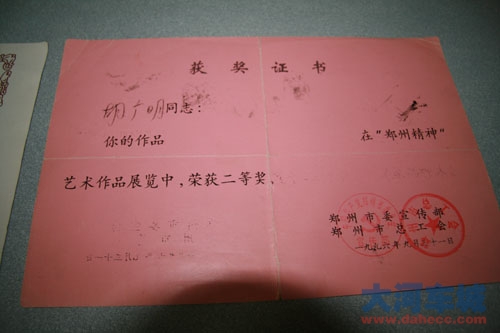 获奖证书
胡广明同志：
你的作品 在“郑州精神”
艺术作品展览中，荣获二等奖，
郑州市委宣传部
郑州市总工会
一九九六年九月二十一日
大河车城
www.daheco.com